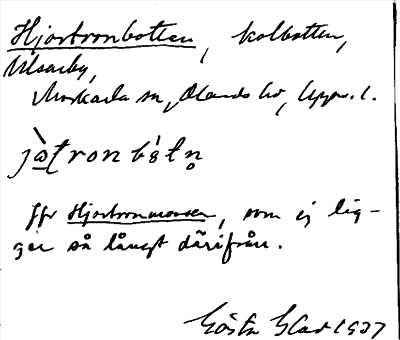 Hjortronbotten, kolbotten,
Ulvarby,
Morkarla sn, Olands hd, Upps. l.
jo̱ṭronbo̱tn̥
Jfr Hjortronmossen, som ej lig-
ger så långt därifrån.
Gösta 1937